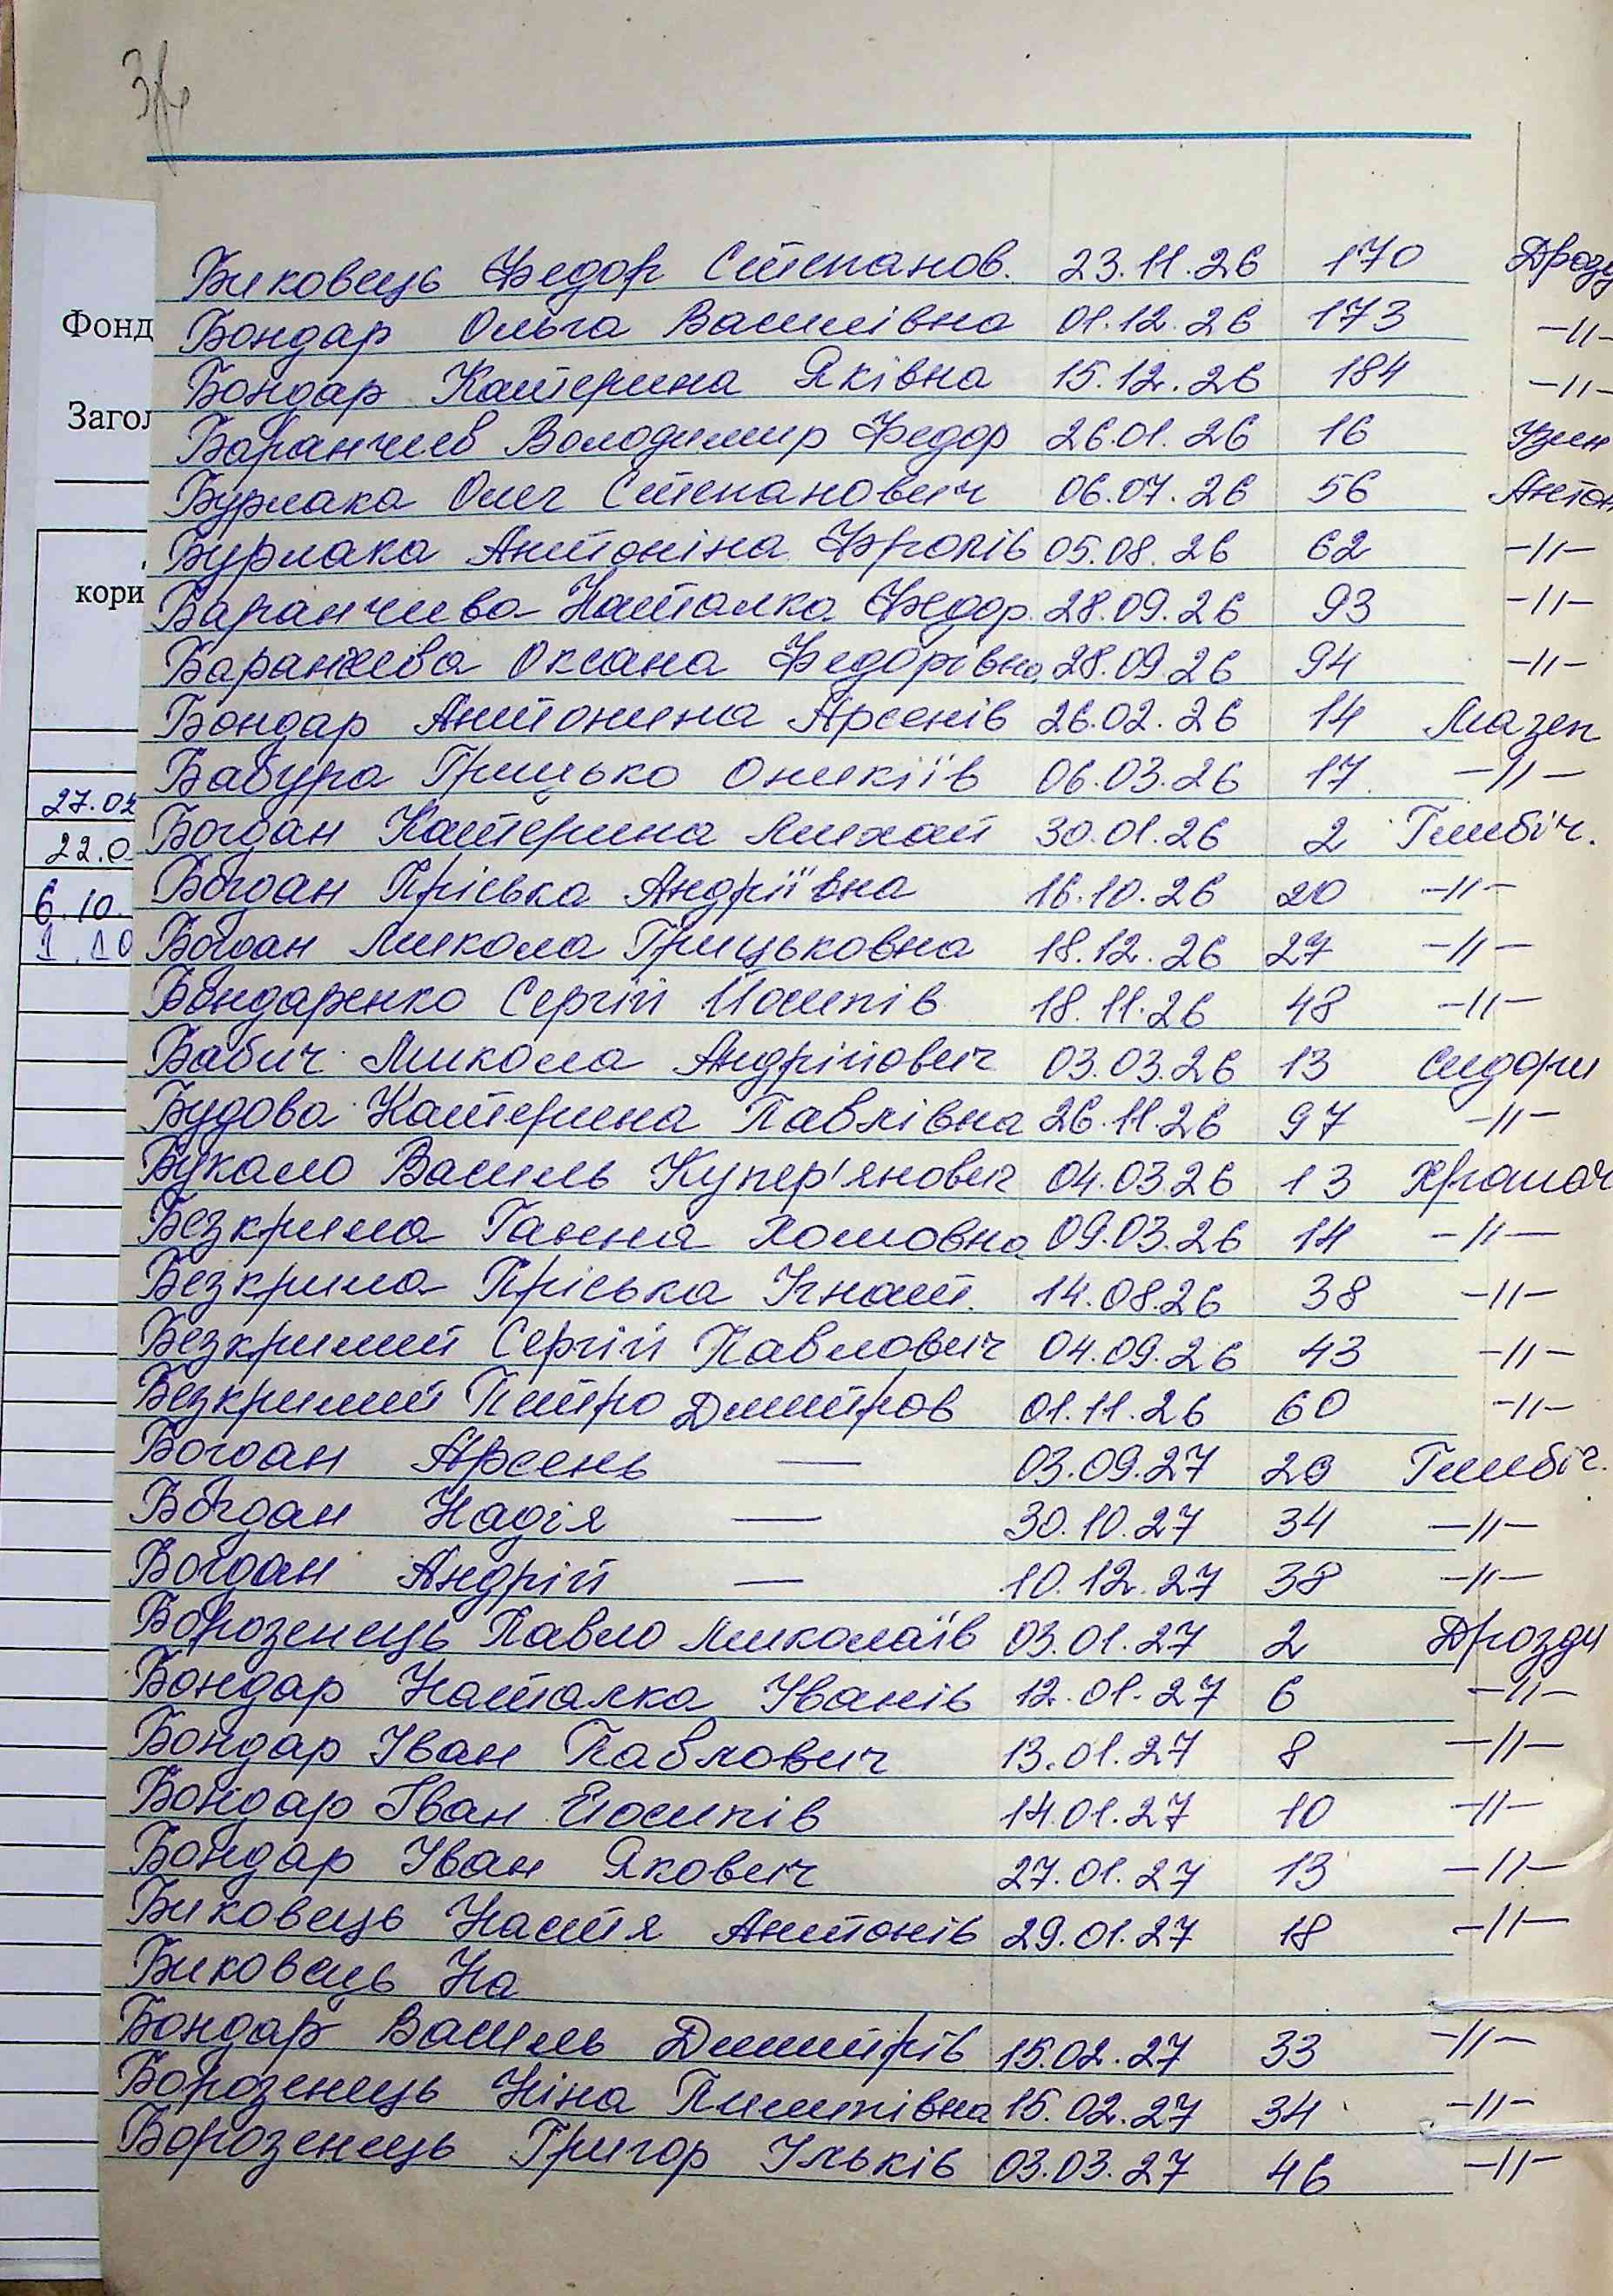 Биковець Федор Степанов. 23.11.26 170 Дрозд
Фонд
Бондар Ольга Василівна 01.12.26 173 -//-
Бондар Катерина Яківна 15.12.26 184 -//-
Загол
Баранчиев Володимир Федор 26.01.26 16 Узин
Бурлака Олег Степанович 06.07.26 56 Антон
Бурлака Антоніна Фролів 05.08.26 62 -//-
кори
Баранчиева Наталка Федор. 28.09.26 93 -//-
Баранчиева Оксана Федорівна 28.09.26 94 -//-
Бондар Антонина Арсенів 26.02.26 14 Мазеп
Бабура Грицько Оникіїв 06.03.26 17 -//-
27.02
Богдан Катерина Михай 30.01.26 2 Глибіч.
22.0
Богдан Пріська Андріївна 16.10.26 20 -//-
6.10.
Богдан Микола Грицьковна 18.12.26 27 -//-
1.10
Бондаренко Сергій Йосипів 18.11.26 48 -//-
Бабич Микола Андрійович 03.03.26 13 Сидори
Будова Катерина Павлівна 26.11.26 97 -//-
Букало Василь Купер'янович 04.03.26 13 Храпач
Безкрила Ганна Хомовна 09.03.26 14 -//-
Безкрила Пріська Ігнат. 14.08.26 38 -//-
Безкрилий Сергій Павлович 04.09.26 43 -//-
Безкрилий Петро Дмитров 01.11.26 60 -//-
Богдан Арсень — 03.09.27 20 Глибіч.
Богдан Надія — 30.10.27 34 -//-
Богдан Андрій — 10.12.27 38 -//-
Борозенець Павло Миколаїв 03.01.27 2 Дрозди
Бондар Наталка Іванів 12.01.27 6 -//-
Бондар Іван Павлович 13.01.27 8 -//-
Бондар Іван Йосипів 14.01.27 10 -//-
Бондар Іван Якович 27.01.27 13 -//-
Биковець Настя Антонів 29.01.27 18 -//-
Биковець На
Бондар Василь Дмитрів 15.02.27 33 -//-
Борозенець Ніна Пилипівна 15.02.27 34 -//-
Борозенець Григор Ільків 03.03.27 46 -//-